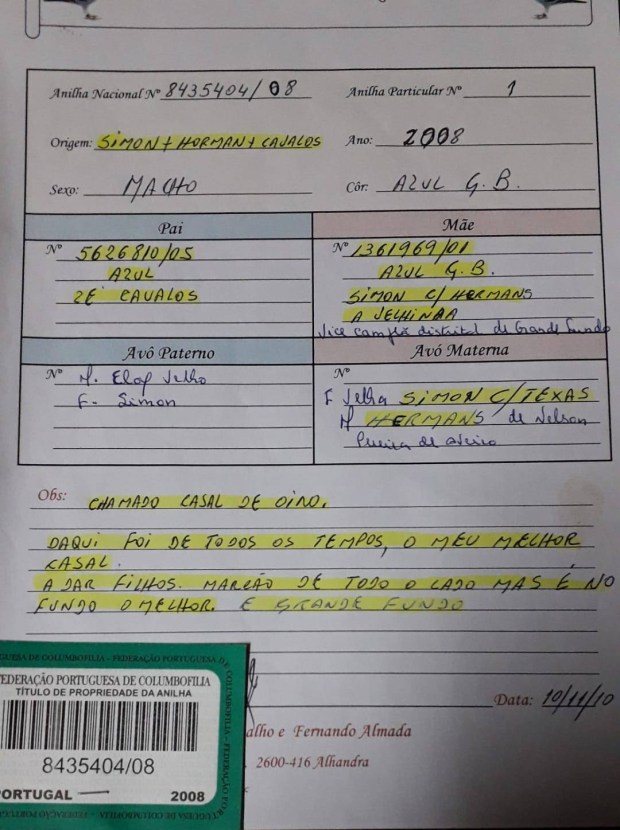 Anilha Nacional Nº 8435404/08 Anilha Particular Nº 1
Origem: SIMON + HORMAN + CAVALOS Ano: 2008
Sexo: MACHO Côr: AZUL G.B.
Pai
Nº 5626810/05
AZUL
ZÉ CAVALOS
Mãe
Nº 1361969/01
AZUL G.B.
SIMON C/ HERMANS
A VELHINHA
Vice campeão distrital de Grande Fundo
Avô Paterno
Nº M. Elof Velho
F. Simon
Avó Materna
Nº
F Velha SIMON C/TEXAS
M HERMANS de Nelson
de Aveiro
Obs: CHAMADO CASAL DE OIRO.
DAQUI FOI DE TODOS OS TEMPOS, O MEU MELHOR
CASAL.
A DAR FILHOS. MARCÃO DE TODO O LADO MAS É NO
FUNDO O MELHOR. E GRANDE FUNDO
Data: 10/11/10
alho e Fernando Almada
2600-416 Alhandra
GUESA DE COLUMBOFILIA - FEDERAÇÃO PORTUGUESA DE COLUMBOFILIA - FEDERAÇÃO POR
FEDERAÇÃO PORTUGUESA DE COLUMBOFILIA
TÍTULO DE PROPRIEDADE DA ANILHA
8435404/08
PORTUGAL — 2008